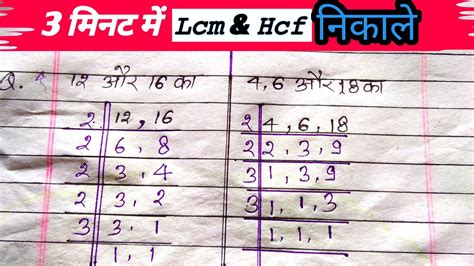 3 मिनट में Lcm & Hcf निकाले
Q. 12 और 16 का
2 12, 16
2 6, 8
2 3, 4
2 3, 2
3 3, 1
1, 1
4, 6 और 18 का
2 4, 6, 18
2 2, 3, 9
3 1, 3, 9
3 1, 1, 3
1, 1, 1